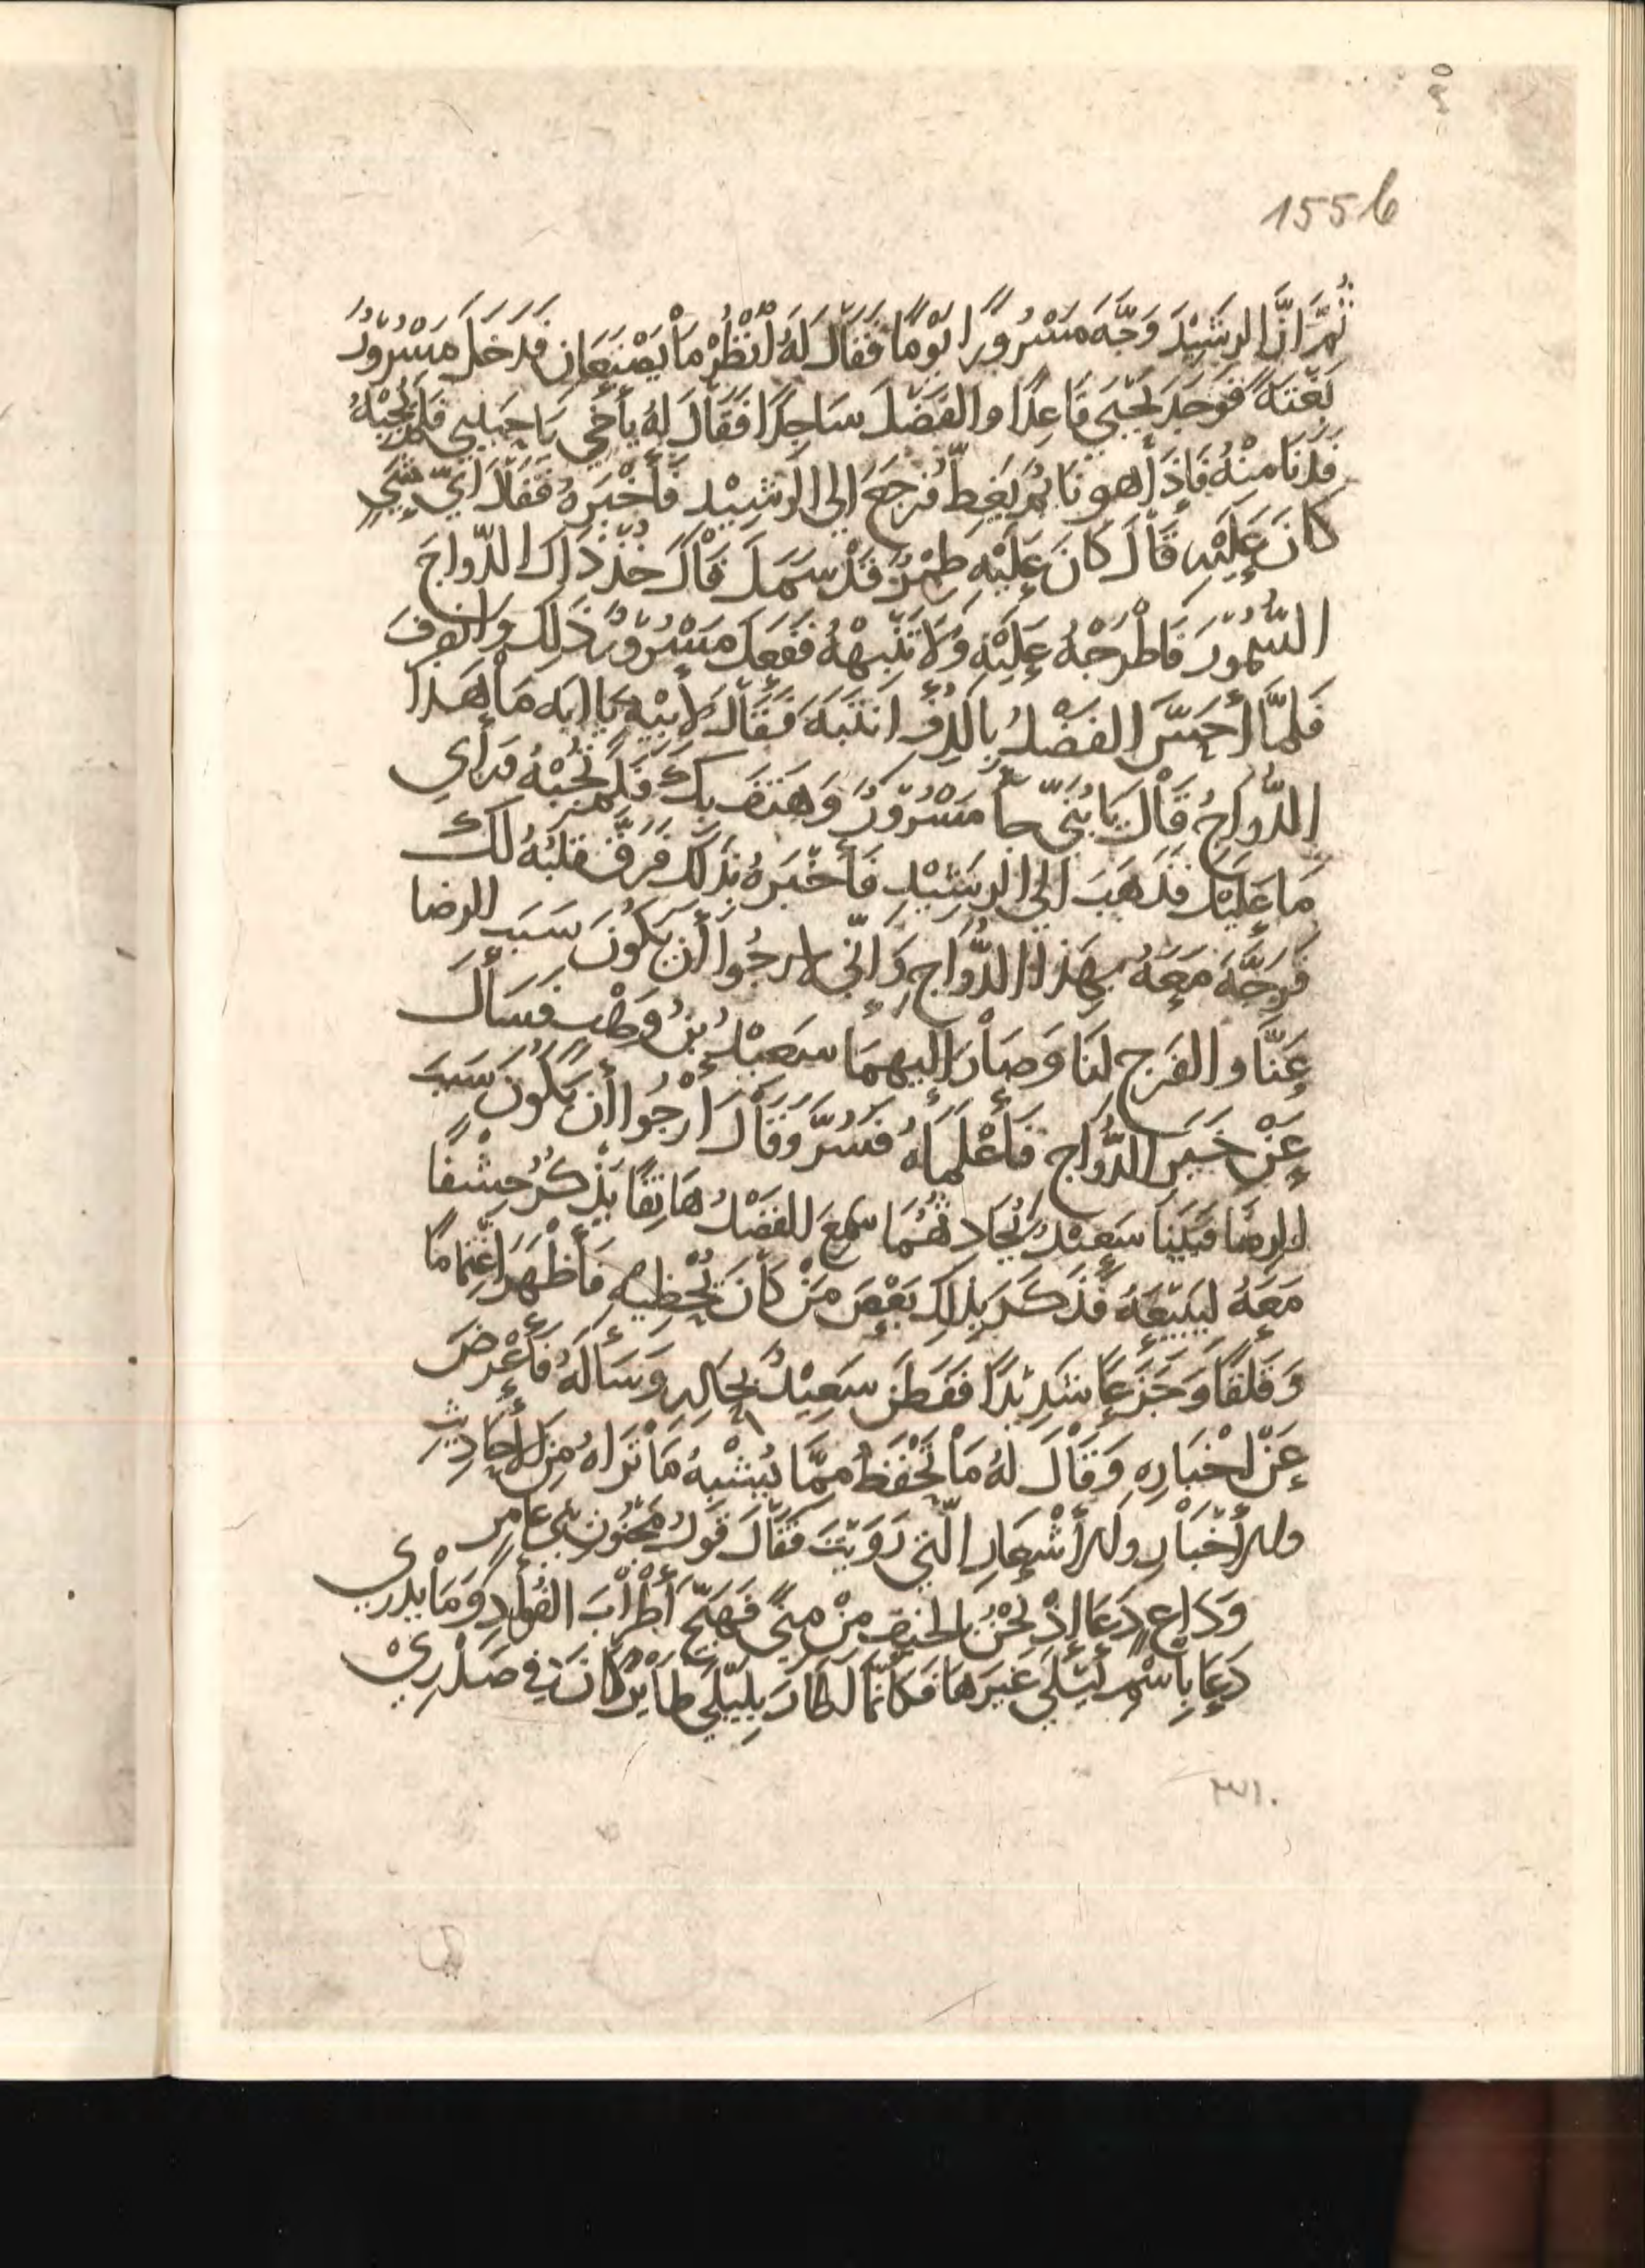 1556
ثُمَّ اِنَّ الرَشِيْدَ وَجَّهَ مَسْرُورًا يَوْمًا فَقَالَ لَهُ اُنْظُرْ مَا يَصْنَعَانِ فَدَخَلَ مَسْرُوْرُ
بَغْتَةً فَوَجَدَ يَحْيَي قَاعِدًا والفَضْلَ سَاجِدًا فَقَالَ لهُ يأَخِي يَا حَبِيبي فَلَمْ يُجِبْهُ
فَدَنَا مِنْهُ فَاِذَا هو نَايِمُ يَغِطُّ فَرَجَعَ الي الرَشِيْدِ فَأَخْبَرَهُ فَقَالَ اَيّ شَيٍ
كانَ عَلَيْهِ قَالَ كانَ عَلَيْهِ طِمْرٌ قَدْ سَمَلَ قَالَ خُذْ ذَاكَ الدُّواجَ
السَّمُّوْرَ فَاطْرَحْهُ عَلَيْهِ وَلَا تُنَبِّهْهُ فَفَعَلَ مَسْرُوْرُ ذَلِكَ وَانصَرَفَ
فَلَمَّا أَحَسَّ الفَضْلُ بِالدِفْءِ انْتَبَهَ فَقَالَ لِأَبِيْهِ يَا ابَه مَا هَذا
الدُّواجُ قَالَ يَا بُنَيّ جآ مَسْرُوْرُ وَهَتَفَ بِكَ فَلَمْ تُجِبْهُ وَرَأي
مَا عَلَيْكَ فَذَهَبَ الي الرَشِيْدِ فَأَخْبَرَهُ بذَلِكَ فَرَقَّ قَلْبُهُ لَكَ
فَوَجَّهَ مَعَهُ بِهَذا الدُّوَاجِ وَاِنِّي لارجُوا أن يَكُونَ سَبَب الرضا
عَنَّا والفَرَج لنَا وَصَارَ اليهِمَا سَعِيْدُ بْنُ وَهْبٍ فَسَأَلَ
عَنْ خَبَرِ الدُّوَاجِ فَأَعْلَمَاهُ فَسُرَّ وَقَالَ ارْجُوا أن يَكُونَ سَبَبَ
الرِضَا فَبَيْنَا سَعِيْدُ يُحَادِثُهُمَا سَمِعَ الفَضْلُ هَاتِفًا يَذْكُرُ خِشْفًا
مَعَهُ لِيَبِيْعَهُ فَذَكَرَ بِذَاكَ بَعْضَ مَنْ كَانَ يُحْظِيْهِ فَأَظْهَرَ اغْتِمَامًا
وَقَلَقًا وَجَزَعًا شَدِيْدًا فَفَطَنَ سَعِيْدُ بِحَالِهِ وَسَأَلَهُ فَأَعْرَضَ
عَنْ اخْبَارِهِ وَقَالَ لهُ مَا تَحْفَظُ مِمَّا يُشْبِهُ مَا تَرَاهُ مِنَ الأَحَادِيْثِ
والأَخْبَارِ والأَشْعَارِ الَّتِي رَوَيْتَ فَقَالَ قَوْلُ مَجْنُوْنِ بَنِي عَامِرِ
وَدَاعٍ دَعَا اِذْ نَحْنُ بالخَيْفِ مِنْ مِنًي فَهَيَّجَ أَطْرَابَ الفُؤَادِ وَمَا يَدْرِي
دَعَا بِاسْمِ لَيْلَي غَيْرَهَا فَكَأنَّمَا أَطَارَ بِلَيْلَي طَايِرًا كَانَ في صَدْرِيْ
٣١٠